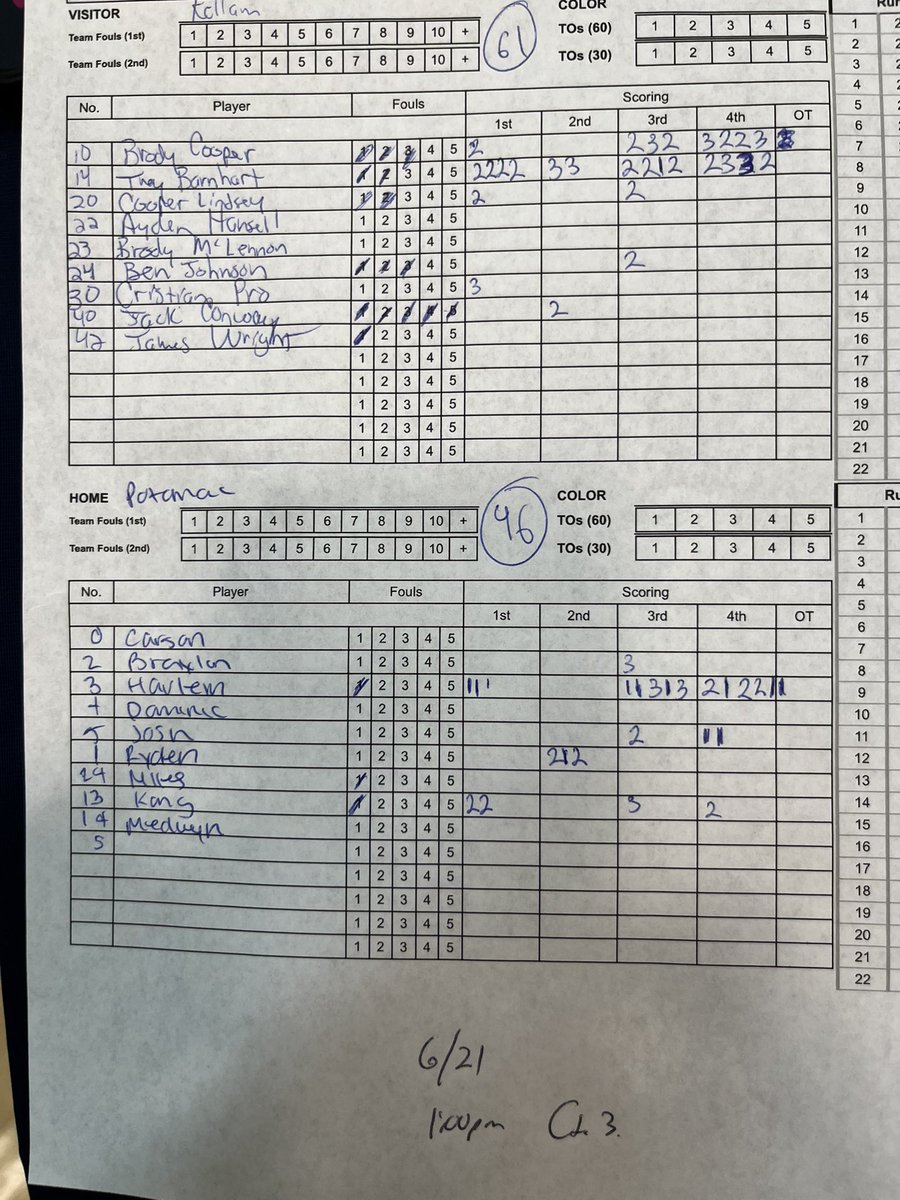 VISITOR Kellam COLOR
Team Fouls (1st) 1 2 3 4 5 6 7 8 9 10 + 61 TOs (60) 1 2 3 4 5
Team Fouls (2nd) 1 2 3 4 5 6 7 8 9 10 + TOs (30) 1 2 3 4 5
No. Player Fouls Scoring
1st 2nd 3rd 4th OT
10 Brody Cooper 1 2 3 4 5 2 232 3223
14 Trey Barnhart 1 2 3 4 5 2222 33 2212 2332
20 Cooper Lindsey 1 2 3 4 5 2 2
22 Ayden Hansell 1 2 3 4 5
23 Brody McLennon 1 2 3 4 5
24 Ben Johnson 1 2 3 4 5 2
30 Cristian Pro 1 2 3 4 5 3
40 Jack Conway 1 2 3 4 5 2
42 James Wright 1 2 3 4 5
1 2 3 4 5
1 2 3 4 5
1 2 3 4 5
1 2 3 4 5
1 2 3 4 5
HOME Potomac COLOR
Team Fouls (1st) 1 2 3 4 5 6 7 8 9 10 + 46 TOs (60) 1 2 3 4 5
Team Fouls (2nd) 1 2 3 4 5 6 7 8 9 10 + TOs (30) 1 2 3 4 5
No. Player Fouls Scoring
1st 2nd 3rd 4th OT
0 Carson 1 2 3 4 5
2 Braylon 1 2 3 4 5 3
3 Harlem 1 2 3 4 5 111 11313 212211
Dominic 1 2 3 4 5
5 Josh 1 2 3 4 5 2 11
1 Ryden 1 2 3 4 5 212
24 Miles 1 2 3 4 5
13 Kang 1 2 3 4 5 22 3 2
14 Medwyn 1 2 3 4 5
5 1 2 3 4 5
1 2 3 4 5
1 2 3 4 5
1 2 3 4 5
1 2 3 4 5
6/21
1:00pm Ct 3.
1
2
3
4
5
6
7
8
9
10
11
12
13
14
15
16
17
18
19
20
21
22
1
2
3
4
5
6
7
8
9
10
11
12
13
14
15
16
17
18
19
20
21
22